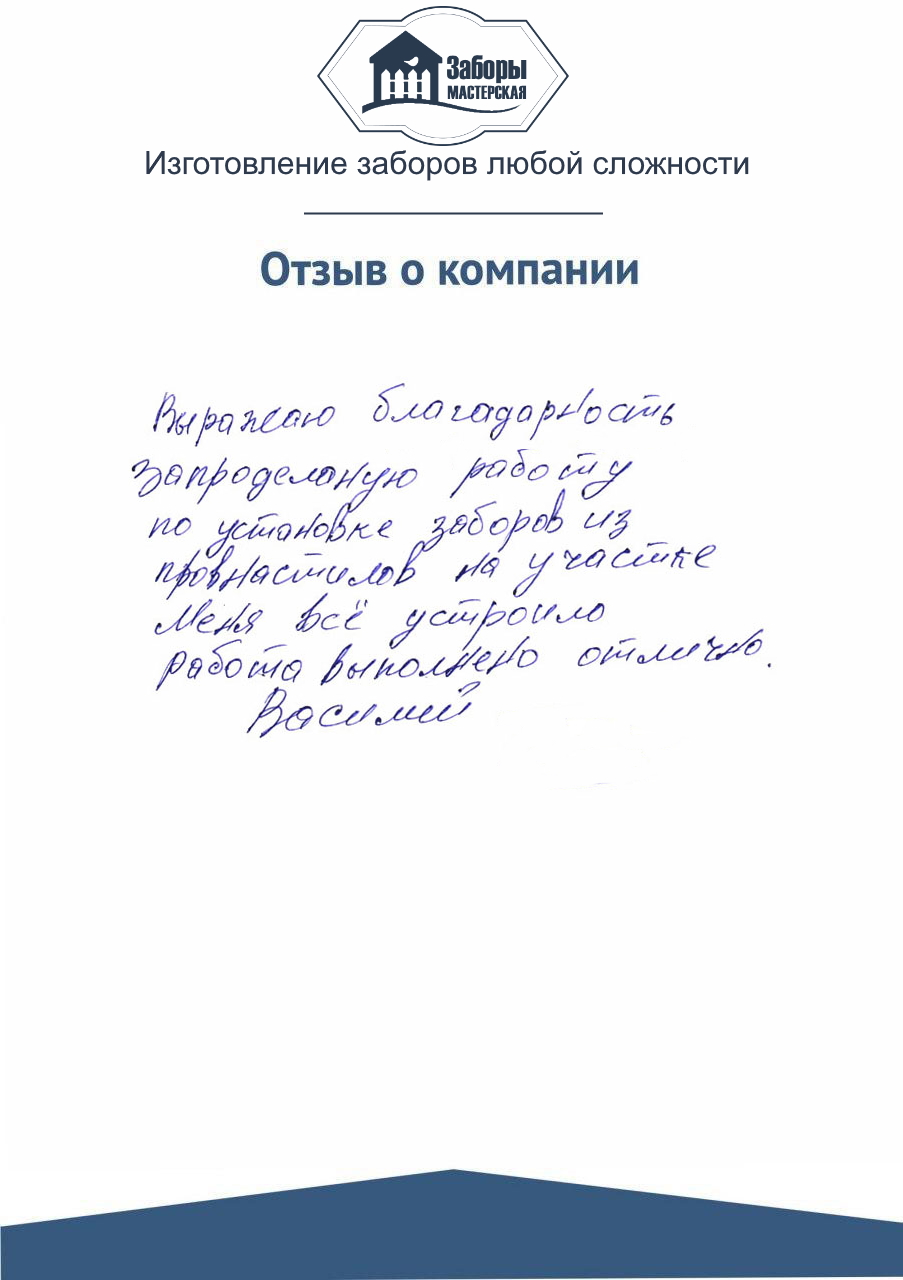 Заборы
МАСТЕРСКАЯ
Изготовление заборов любой сложности
Отзыв о компании
Выражаю благадарность
запроделаную работу
по установке заборов из
провнастилов на участке
Меня всё устроило
работа выполнено отлично.
Василий